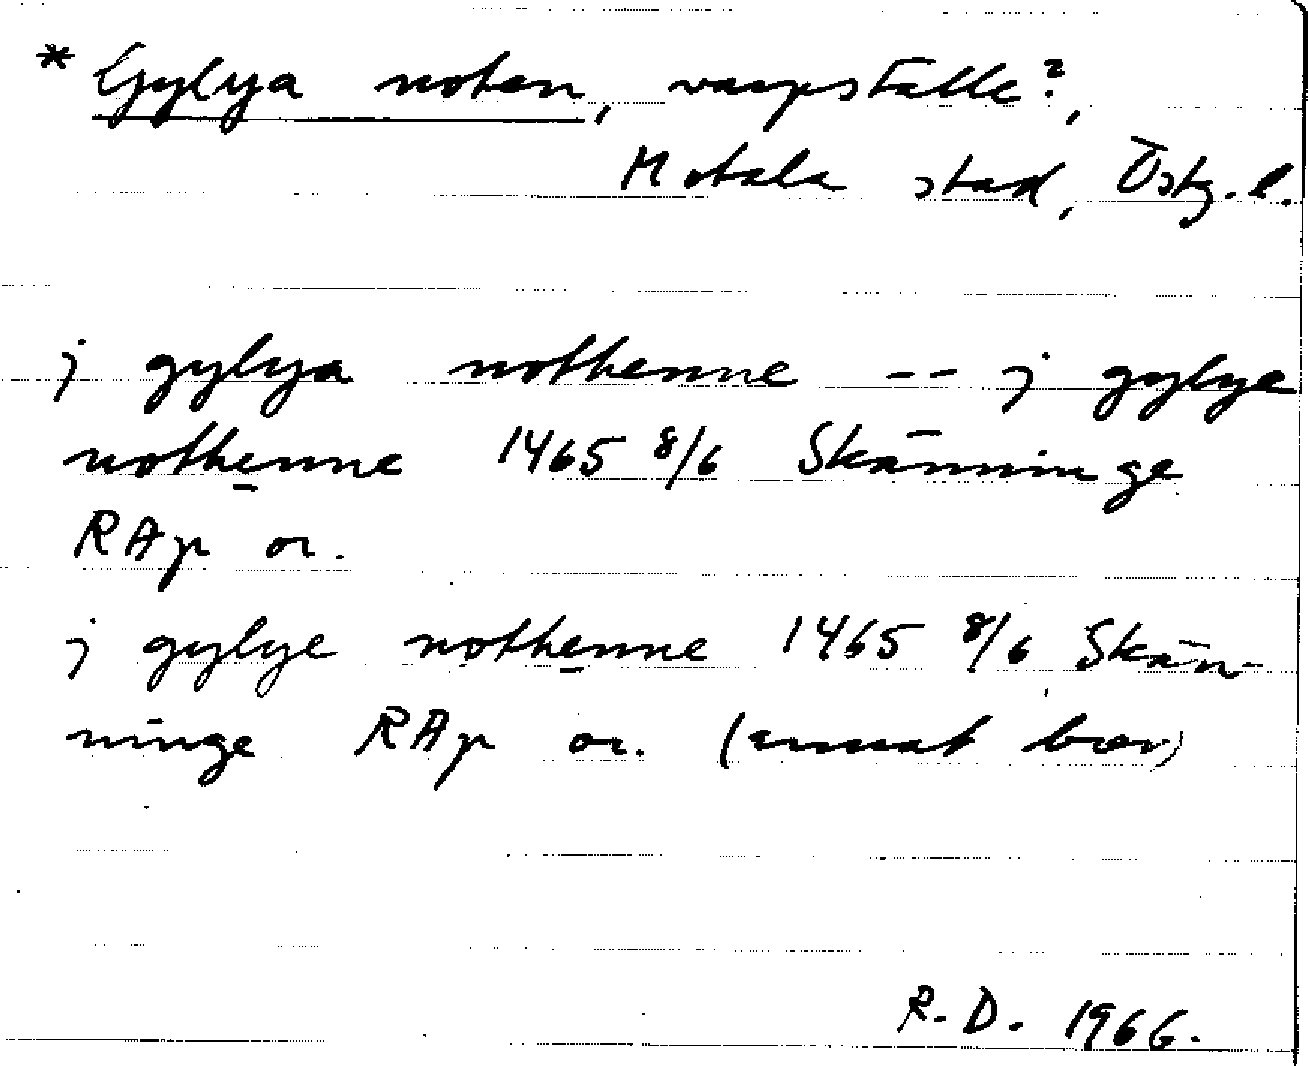 * Gylya noten, varpställe?,
Motala stad, Östg. l.
j gylya nothenne -- j gylye
nothenne 1465 8/6 Skänninge
RAp or.
j gylye nothenne 1465 8/6 Skän-
ninge RAp or. (annat brev)
R.D. 1966.